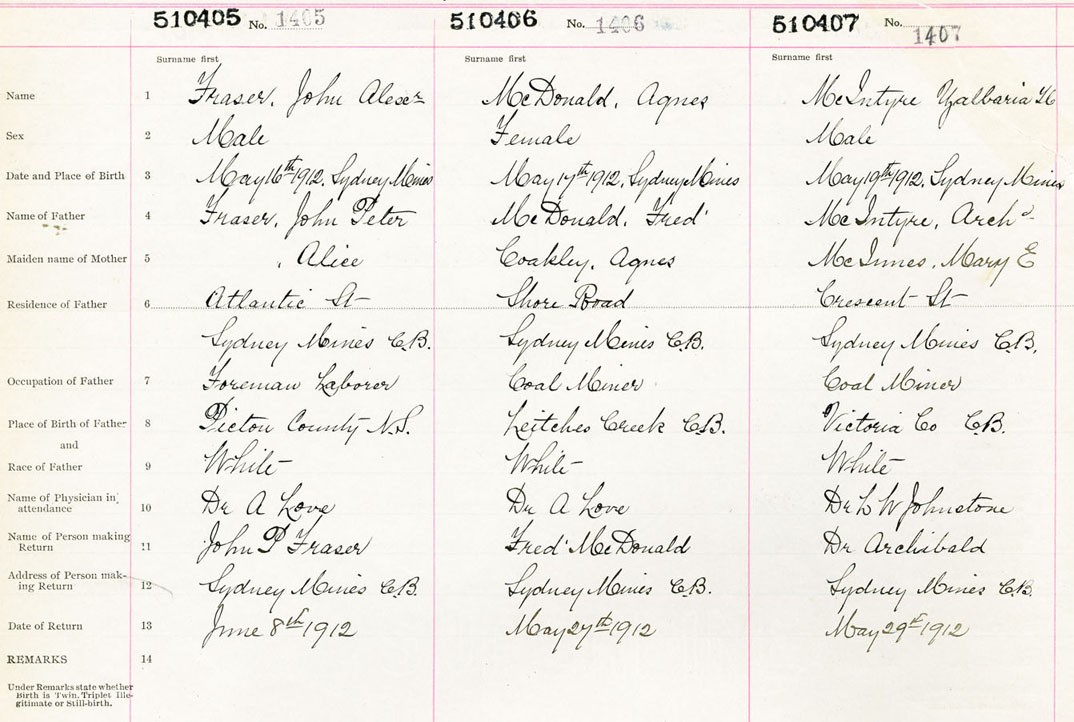 510405 No. 1405 510406 No. 1406 510407 No. 1407
Surname first Surname first Surname first
Name 1 Fraser, John Alexr McDonald, Agnes McIntyre
Sex 2 Male Female Male
Date and Place of Birth 3 May 16th 1912, Sydney Mines May 17th 1912, Sydney Mines May 19th 1912, Sydney Mines
Name of Father 4 Fraser, John Peter McDonald, Fred' McIntyre, Archd
Maiden name of Mother 5 , Alice Coakley, Agnes McInnes, Mary E
Residence of Father 6 Atlantic St Shore Road Crescent St
Sydney Mines C.B. Sydney Mines C.B. Sydney Mines C.B.
Occupation of Father 7 Foreman Laborer Coal Miner Coal Miner
Place of Birth of Father 8 Pictou County N.S. Leitches Creek C.B. Victoria Co C.B.
and
Race of Father 9 White White White
Name of Physician in
attendance 10 Dr A Love Dr A Love Dr L W Johnstone
Name of Person making
Return 11 John P Fraser Fred' McDonald Dr Archibald
Address of Person mak-
ing Return 12 Sydney Mines C.B. Sydney Mines C.B. Sydney Mines C.B.
Date of Return 13 June 8th 1912 May 27th 1912 May 29th 1912
REMARKS 14
Under Remarks state whether
Birth is Twin, Triplet Ille-
gitimate or Still-birth.